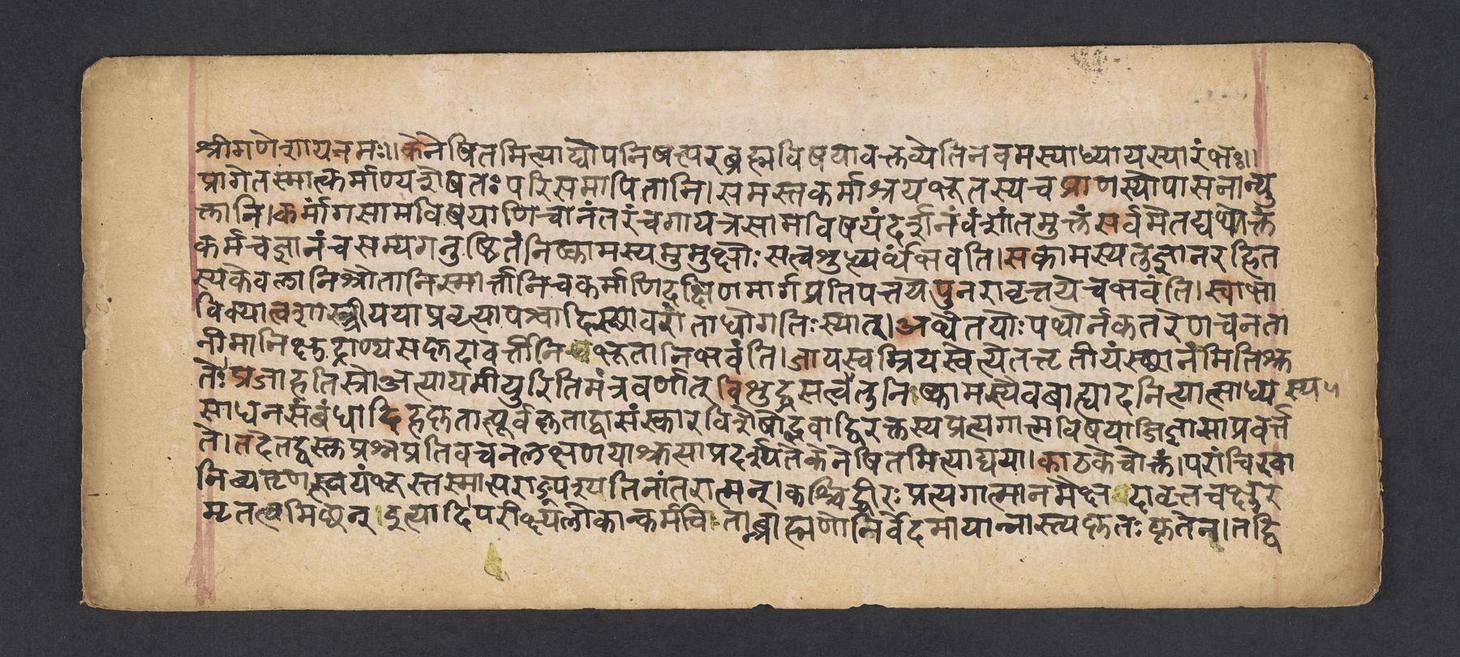 श्रीगणेशायनमः॥केनेषितमित्याद्योपनिषत्परब्रह्मविषयावक्तव्येतिनवमस्याध्यायस्यारंभः॥
प्रागेतस्मात्कर्माण्यशेषतःपरिसमापितानि।समस्तकर्माश्रयभूतस्यचप्राणस्योपासनान्यु
क्तानि।कर्मांगसामविषयाणिचानंतरंचगायत्रसामविषयंदर्शनंवंशांतमुक्तंसर्वमेतद्यथोक्तं
कर्मचज्ञानंचसम्यगनुष्ठितंनिष्कामस्यमुमुक्षोःसत्वशुध्यर्थंभवति।सकामस्यतुज्ञानरहित
स्यकेवलानिश्रौतानिस्मार्त्तानिचकर्माणिदक्षिणमार्गप्रतिपत्तयेपुनरावृत्तयेचभवंति।स्वाभा
विक्यात्वशास्त्रीययाप्रवृत्त्यापश्वादिस्थावरांताधोगतिःस्यात्।अथैतयोःपथोर्नकतरेणचनता
नीमानिक्षुद्राण्यसकृदावर्त्तीनिभूतानिभवंति।जायस्वम्रियस्वेत्येतत्तृतीयंस्थानंमितिश्रु
तेः।प्रजाहतिस्रोअत्यायमीयुरितिमंत्रवर्णात्विशुद्धसत्वस्यतुनिष्कामस्यैवबाह्यादनित्यात्साध्यस्य
साधनसंबंधादिहकृतात्पूर्वकृताद्वासंस्कारविशेषोद्भवाद्विरक्तस्यप्रत्यगात्मविषयाजिज्ञासाप्रवर्त्त
ते।तदेतद्वस्तुप्रश्नप्रतिवचनलक्षणयाश्रुत्याप्रदर्श्यतेकेनेषितमित्याद्यया।काठकेचोक्तं।परांचिखा
निव्यतृणत्स्वयंभूस्तस्मात्पराङ्पश्यतिनांतरात्मन्।कश्चिद्धीरःप्रत्यगात्मानमैक्षदावृत्तचक्षुर
मृतत्वमिच्छन्।इत्यादिपरीक्ष्यलोकान्कर्मचितान्ब्राह्मणोनिर्वेदमायान्नास्त्यकृतःकृतेन।तद्वि